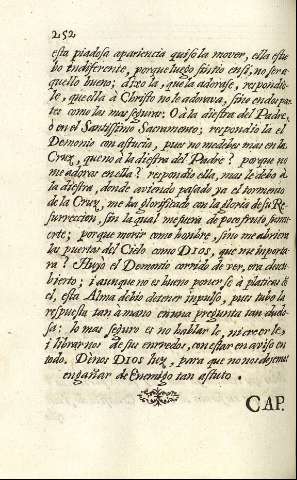 252
esta piadosa apariencia quiso la mover, ella estu
bo indiferente, porque luego sintio en si, no ser a
quello bueno; dixo la, que la adorase, respondio
le, que ella à Christo no le adorava, sino en dos par
tes como las mas seguras: O à la diestra del Padre,
ò en el Santissimo Sacramento; respondio la el
Demonio con astucia, pues no me debes mas en la
Cruz, que no à la diestra del Padre? porque no
me adoras en ella? respondio ella, mas le debo à
la diestra, donde aviendo pasado ya el tormento
de la Cruz, me ha glorificado con la Gloria de su Re
surreccion, sin la qual me fuera de poco fruto, su mu
erte; porque morir como hombre, sino me abriera
las puertas del Cielo como DIOS, que me importa
ra? Huyo el Demonio corrido de ver, era descu
bierto; i aunque no es bueno ponerse à platicas con
el, esta Alma debio de tener inpulso, pues tubo la
respuesta tan a mano en una pregunta tan dudo
sa: lo mas seguro es no hablarle, ni creerle,
i librarnos de sus enredos, con estar en aviso en
todo. Denos DIOS luz, para que no nos dexemos
engañar de Enemigo tan astuto.
CAP.